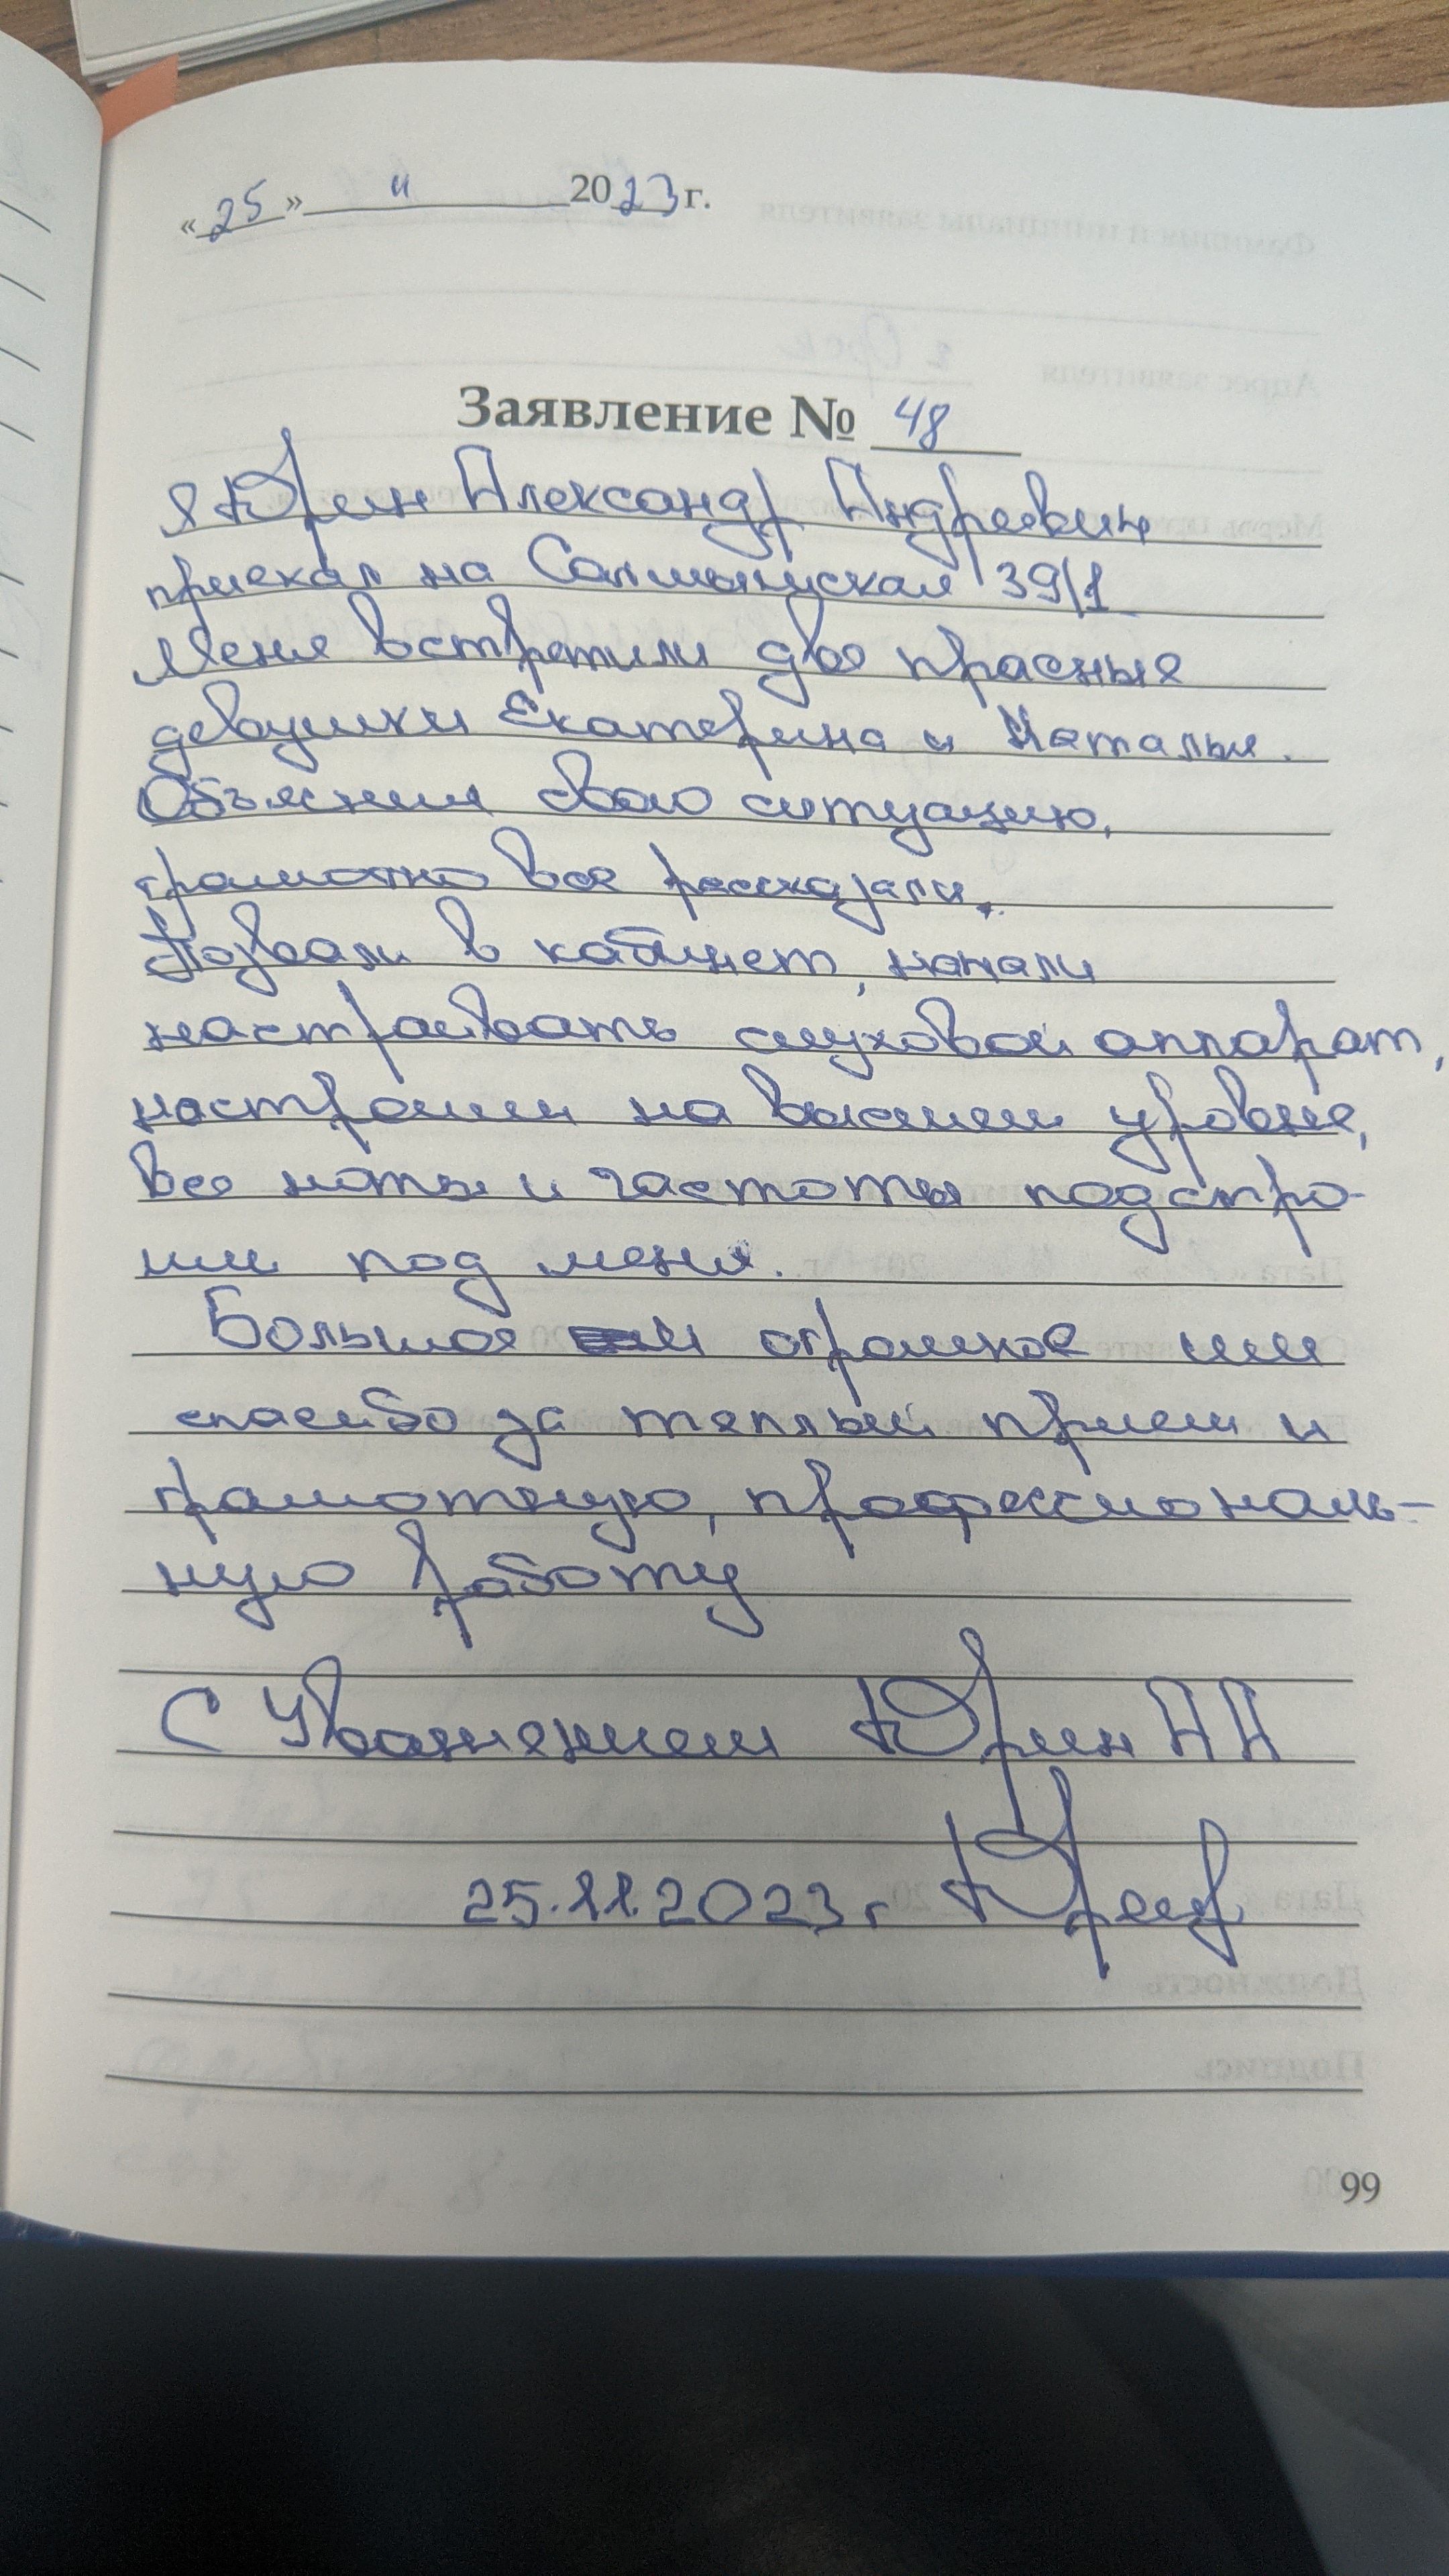 «25» 11 2023 г.
Заявление № 48
Я Юрин Александр Андреевич
приехал на Салмышская 39/1
Меня встретили две красные
девушки Екатерина и Наталья.
Объяснил свою ситуацию,
грамотно все рассказали.
Позвали в кабинет, начали
настраивать слуховой аппарат,
настроили на высшем уровне,
все ноты и частоты подстро-
или под меня.
Большое и огромное им
спасибо за теплый прием и
грамотную, профессиональ-
ную работу
С Уважением Юрин АА
25.11.2023 г
99